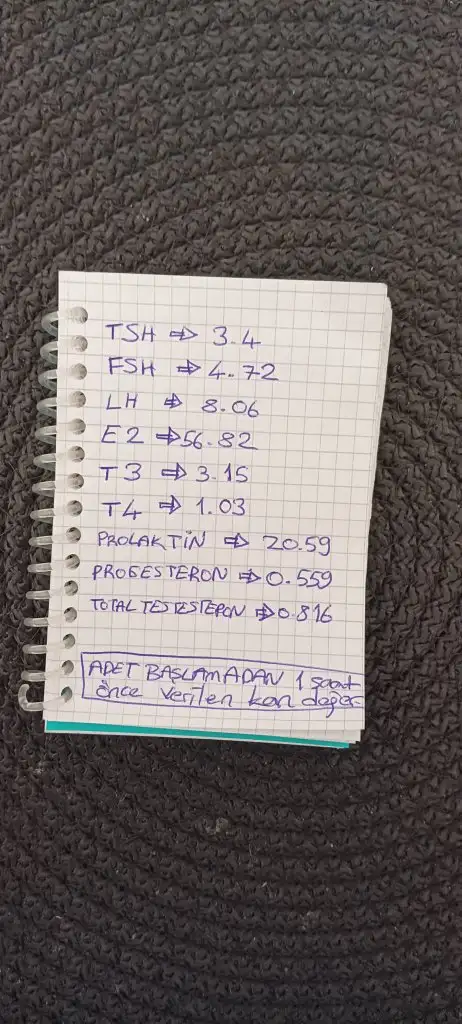 TSH ⇒ 3.4
FSH ⇒ 4.72
LH ⇒ 8.06
E2 ⇒ 56.82
T3 ⇒ 3.15
T4 ⇒ 1.03
PROLAKTİN ⇒ 20.59
PROGESTERON ⇒ 0.559
TOTAL TESTESTERON ⇒ 0.816
ADET BAŞLAMADAN 1 saat
önce verilen kan değer